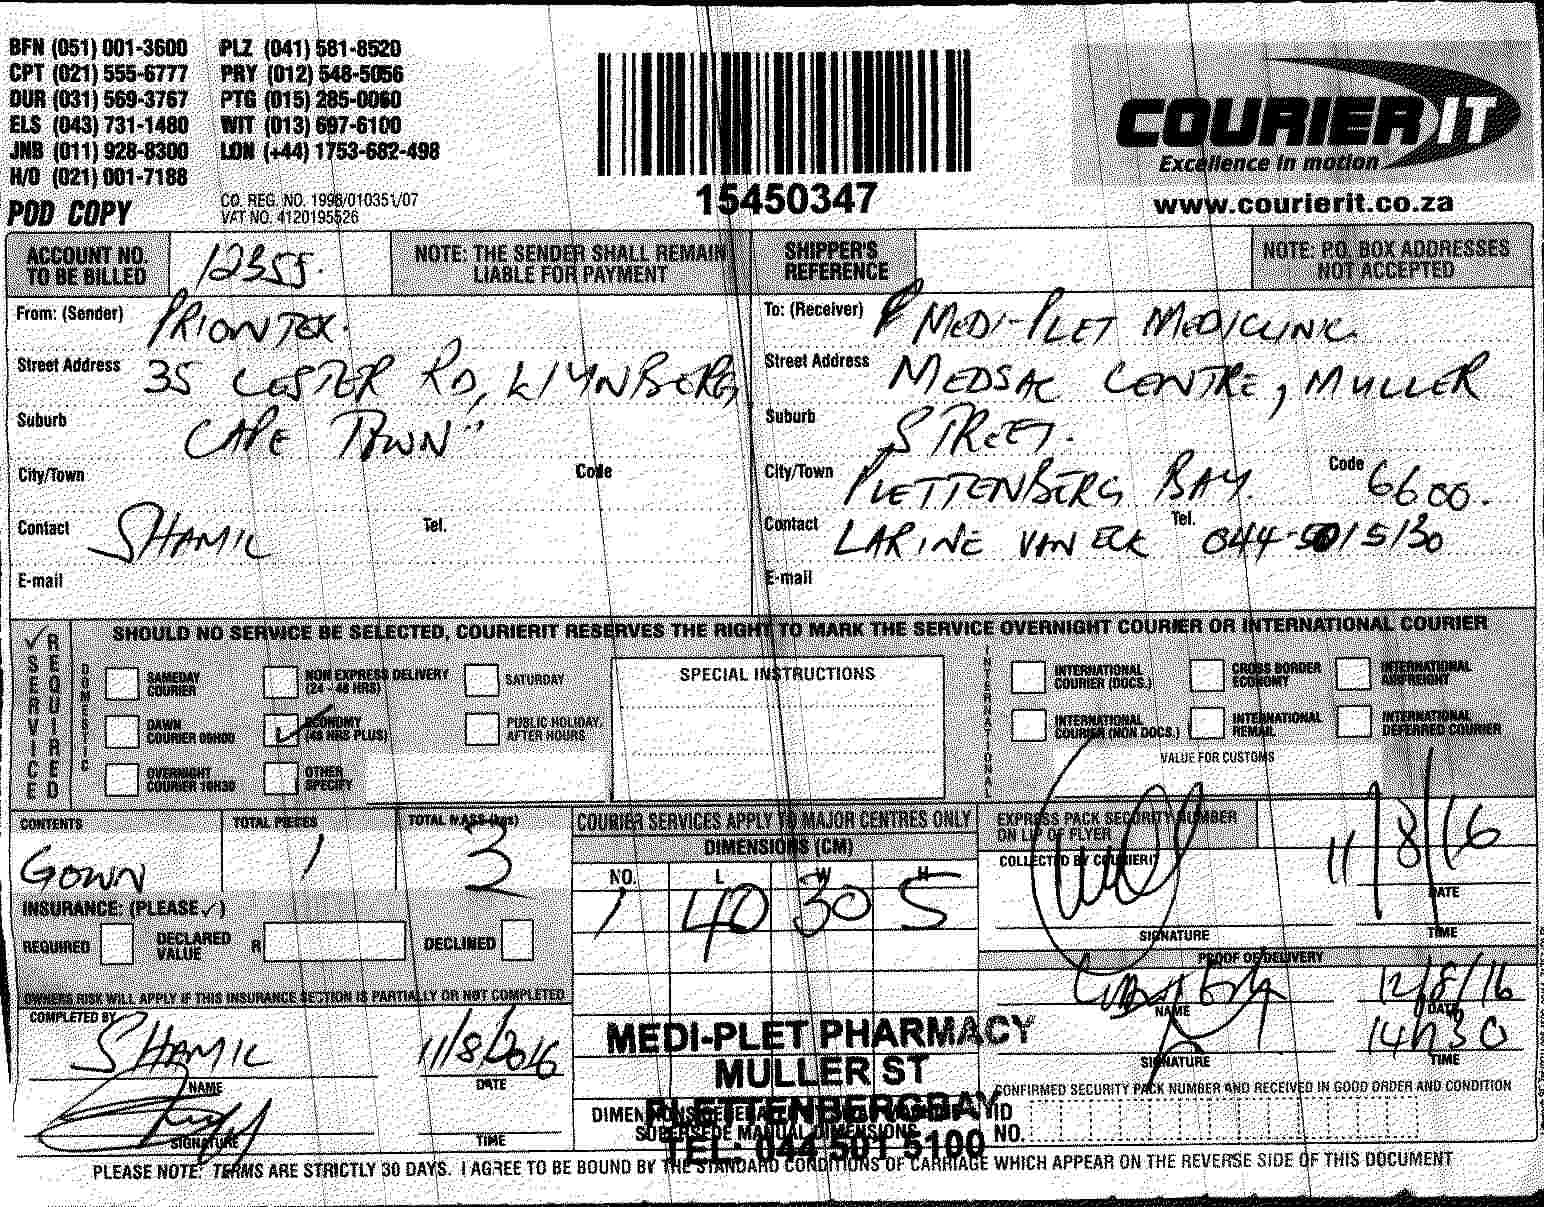 BFN (051) 001-3600 PLZ (041) 581-8520
CPT (021) 555-6777 PRY (012) 548-5056
DUR (031) 569-3767 PTG (015) 285-0060
ELS (043) 731-1480 WIT (013) 697-6100
JNB (011) 928-8300 LON (+44) 1753-682-498
H/O (021) 001-7188
POD COPY
CO. REG. NO. 1998/010351/07
VAT NO. 4120195526
15450347
COURIER IT
Excellence in motion
www.courierit.co.za
ACCOUNT NO. TO BE BILLED 12355.
NOTE: THE SENDER SHALL REMAIN LIABLE FOR PAYMENT
SHIPPER'S REFERENCE
NOTE: P.O. BOX ADDRESSES NOT ACCEPTED
From: (Sender) PRIONTEX.
Street Address 35 LESTER RD, WYNBERG,
Suburb CAPE TOWN"
City/Town Code
Contact SHAMIL Tel.
E-mail
To: (Receiver) MEDI-PLET MEDICLINIC.
Street Address MEDSAC CENTRE, MULLER
Suburb STREET.
City/Town PLETTENBERG BAY. Code 6600.
Contact LARINE VAN ECK Tel. 044-5015130
E-mail
SERVICE REQUIRED
SHOULD NO SERVICE BE SELECTED, COURIERIT RESERVES THE RIGHT TO MARK THE SERVICE OVERNIGHT COURIER OR INTERNATIONAL COURIER
DOMESTIC
SAMEDAY COURIER
NON EXPRESS DELIVERY (24 - 48 HRS)
SATURDAY
DAWN COURIER 09H00
ECONOMY (48 HRS PLUS)
PUBLIC HOLIDAY, AFTER HOURS
OVERNIGHT COURIER 10H30
OTHER SPECIFY
SPECIAL INSTRUCTIONS
INTERNATIONAL
INTERNATIONAL COURIER (DOCS.)
CROSS BORDER ECONOMY
INTERNATIONAL AIRFREIGHT
INTERNATIONAL COURIER (NON DOCS.)
INTERNATIONAL REMAIL
INTERNATIONAL DEFERRED COURIER
VALUE FOR CUSTOMS
CONTENTS TOTAL PIECES TOTAL MASS (kgs)
GOWN 1 3
INSURANCE: (PLEASE ✓)
REQUIRED DECLARED VALUE R DECLINED
OWNERS RISK WILL APPLY IF THIS INSURANCE SECTION IS PARTIALLY OR NOT COMPLETED
COMPLETED BY
SHAMIL 11/8/2016
NAME DATE
SIGNATURE TIME
COURIER SERVICES APPLY TO MAJOR CENTRES ONLY
DIMENSIONS (CM)
NO. L W H
1 40 30 5
EXPRESS PACK SECURITY NUMBER ON LIP OF FLYER
COLLECTED BY COURIERIT
11/8/16
DATE
SIGNATURE TIME
PROOF OF DELIVERY
12/8/16
NAME DATE
14h30
SIGNATURE TIME
MEDI-PLET PHARMACY
MULLER ST
PLETTENBERGBAY
TEL: 044 501 5100
CONFIRMED SECURITY PACK NUMBER AND RECEIVED IN GOOD ORDER AND CONDITION
ID NO.
SUPERSEDE MANUAL DIMENSIONS
PLEASE NOTE: TERMS ARE STRICTLY 30 DAYS. I AGREE TO BE BOUND BY THE STANDARD CONDITIONS OF CARRIAGE WHICH APPEAR ON THE REVERSE SIDE OF THIS DOCUMENT